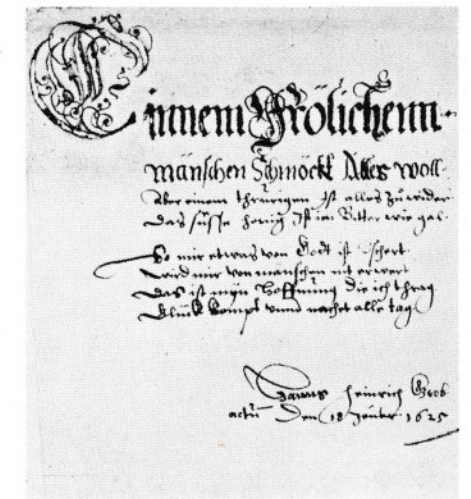 Einnem Frölichenn
mänschen Schmöckt Alles woll
Aber einem thrurigen Ist alles zu wider
Das süsse honig Ist im Bitter wie gal
So mir etwas von Godt ist bschert
wird mir von mänschen nit erwert
das ist myn Hoffnung die ich thrag
Glück kompt unnd nachet alle tag
Hanns Heinrich Grob
actum Den 18 Jenner 1625